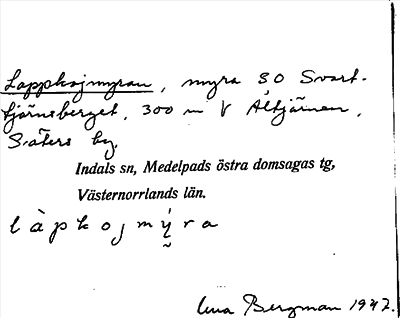 Lappkojmyran, myra SO Svart-
tjärnsberget, 300 m V Åltjärnen,
Säters by.
Indals sn, Medelpads östra domsagas tg,
Västernorrlands län.
làpkojmýra
Bergman 1942.